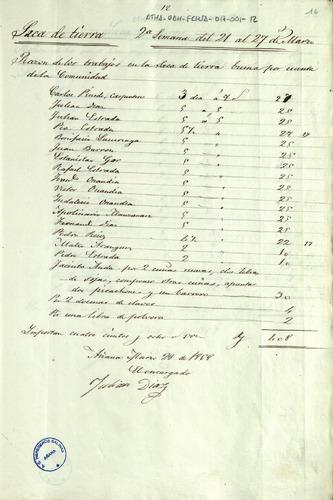 12
ATHA-DAH-FCHJA-017-001-12
16
Saca de tierra 2ª Semana del 21 al 27 de Marzo
Razon de los trabajos en la Saca de tierra buena por cuenta
de la Comunidad
Carlos Pinedo, Carpintero 3 dias á 9 27
Julian Diaz 5 " 5 25
Julian Estrada 5 " 5 25
Pio Estrada 5½ " 27 17
Bonifacio 5 " 25
Juan Barron 5 " 25
Estanislao 5 " 25
Rafael Estrada 5 " 25
5 " 25
Victor 5 " 25
Indalecio 5 " 25
Apolinario 5 " 25
Fernando Diaz 5 " 25
Pedro Ruiz 4½ " 22 17
Mateo 2 " 10
Pedro Estrada 2 " 10
Jacinta por 2 cuñas nuevas, dos libras
de sojas, componer otras cuñas, apuntar
dos picachones y un barreno 30
Por 2 docenas de clavos 4
Por una libra de polvora 2
Importan cuatro cientos y ocho 408
Añana Marzo 28 de 1858
El encargado
Julian Diaz